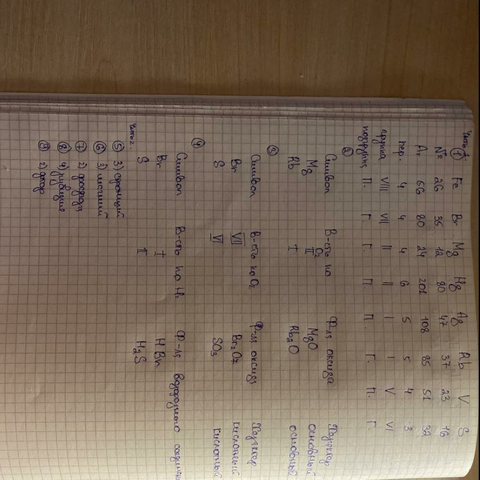 Часть 1
① Fe Br Mg Hg Ag Rb V S
№ 26 35 12 80 47 37 23 16
Ar 56 80 24 201 108 85 51 32
пер. 4 4 4 6 5 5 4 3
группа VIII VII II II I I V VI
подгруппа П. Г. Г. П. П. Г. П. Г.
②
Символ В-сть по O₂ Ф-ла оксида Характер
Mg II MgO основный
Rb I Rb₂O основный
③
Символ В-сть по O₂ Ф-ла оксида Характер
Br VII Br₂O₇ кислотный
S VI SO₃ кислотный
④
Символ В-сть по H₂ Ф-ла водородного соединения
Br I HBr
S II H₂S
Часть 2.
⑤ 3)
⑥ 3) магний
⑦ 2)
⑧ 4) рубидия
⑨ 2) фтор